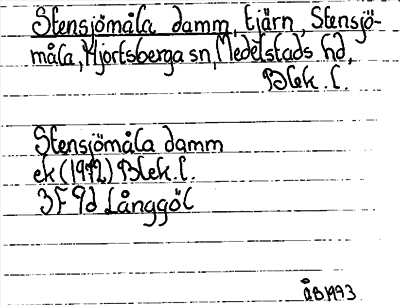 Stensjömåla damm, tjärn, Stensjö-
måla, Hjortsberga sn, Medelstads hd,
Blek. l.
Stensjömåla damm
ek (1972) Blek. l.
3F 9d Långgöl
ÅB 1993.